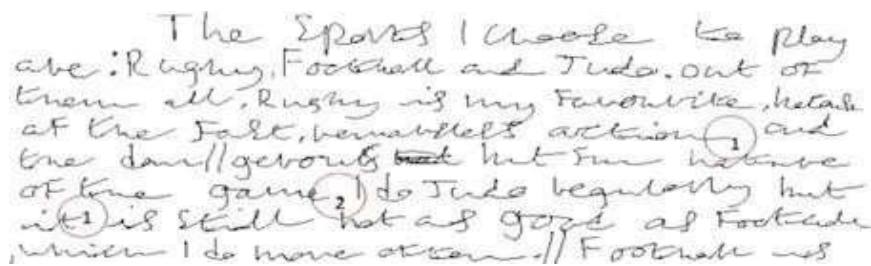 The Sports I choose to play
are: Rugby, Football and Judo. out of
them all, Rugby is my Favourite,
of the Fast, action 1 and
the dan//gerous but Fun nature
of the game 2 I do Judo regularly but
it 1 is still not as good as
, which I do more often.// Football is